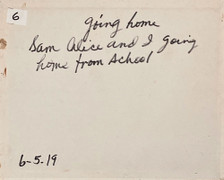 6
going home
Sam Alice and I going
home from school
6-5.19